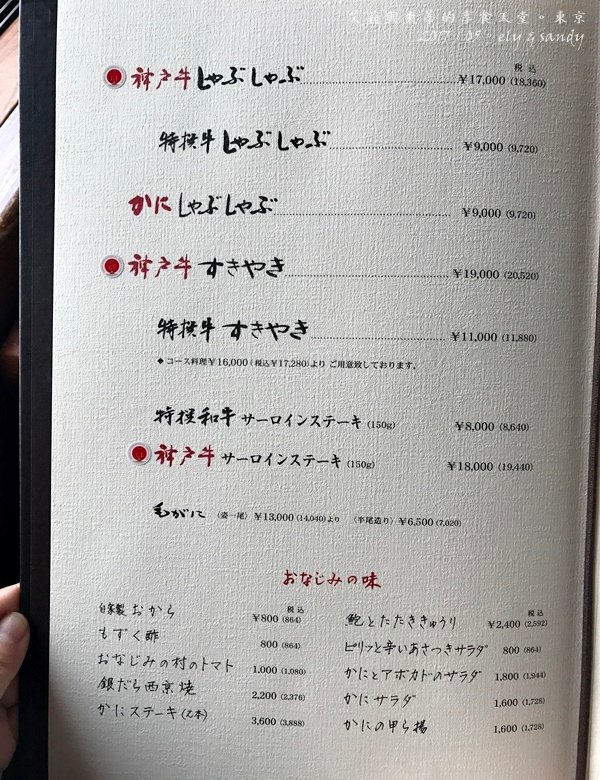 艾莉興桑蒂的享食天堂。東京
2017/09 ely&sandy
税込
神戸牛 しゃぶしゃぶ ¥17,000 (18,360)
特撰牛 しゃぶしゃぶ ¥9,000 (9,720)
かに しゃぶしゃぶ ¥9,000 (9,720)
神戸牛 すきやき ¥19,000 (20,520)
特撰牛 すきやき ¥11,000 (11,880)
◆コース料理¥16,000(税込¥17,280)より ご用意致しております。
特撰和牛 サーロインステーキ (150g) ¥8,000 (8,640)
神戸牛 サーロインステーキ (150g) ¥18,000 (19,440)
毛がに 〈姿一尾〉 ¥13,000 (14,040)より 〈半尾造り〉 ¥6,500 (7,020)
おなじみの味
税込
自家製 おから ¥800 (864)
もずく酢 800 (864)
おなじみの村のトマト 1,000 (1,080)
銀だら西京焼 2,200 (2,376)
かにステーキ(2本) 3,600 (3,888)
税込
鮑とたたききゅうり ¥2,400 (2,592)
ピリッと辛いあさつきサラダ 800 (864)
かにとアボカドのサラダ 1,800 (1,944)
かにサラダ 1,600 (1,728)
かにの甲ら揚 1,600 (1,728)